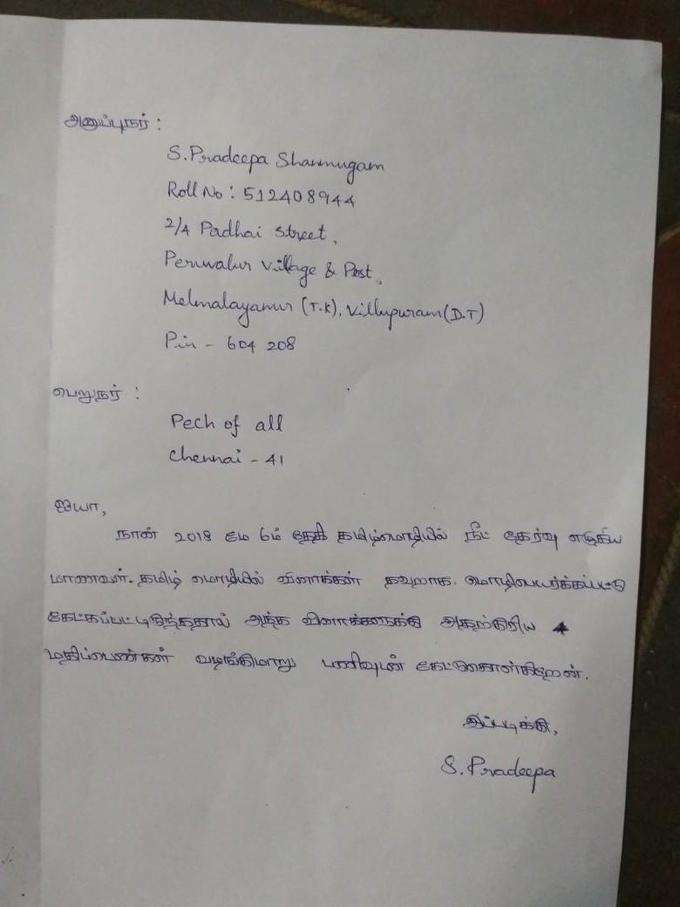 அனுப்புநர் :
S.Pradeepa Shanmugam
Roll No : 512408944
2/4 Padhai Street,
Peruvalur Village & Post,
Melmalayanur (T.K), Villupuram (D.T)
Pin - 604 208
பெறுநர் :
Pech of all
Chennai - 41
ஐயா,
நான் 2018 மே 6ம் தேதி தமிழ்மொழியில் நீட் தேர்வு எழுதிய
மாணவர். தமிழ் மொழியில் வினாக்கள் தவறாக மொழிபெயர்க்கப்பட்டு
கேட்கப்பட்டிருந்ததால் அந்த வினாக்களுக்கு அதற்குரிய 4
மதிப்பெண்கள் வழங்கிமாறு பணிவுடன் கேட்டுகொள்கிறேன்.
இப்படிக்கு,
S. Pradeepa